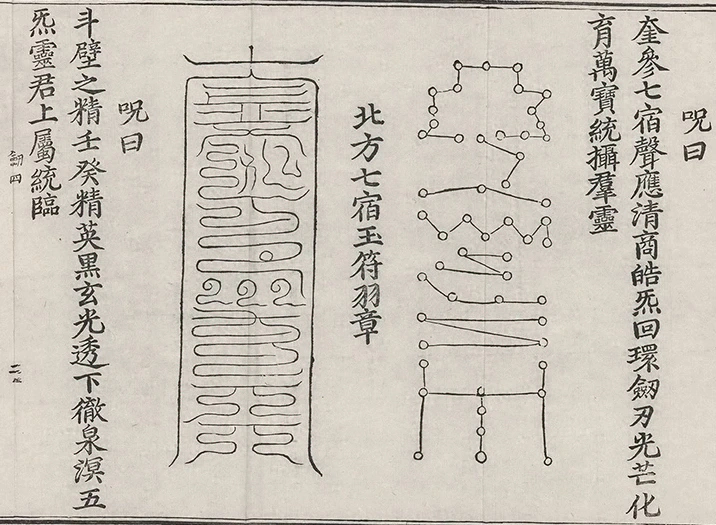 呪曰
奎參七宿聲應清商皓炁回環劒刃光芒化
育萬寶統攝羣靈
北方七宿玉符羽章
呪曰
斗壁之精壬癸精英黑玄光透下徹泉溟五
炁靈君上屬統臨